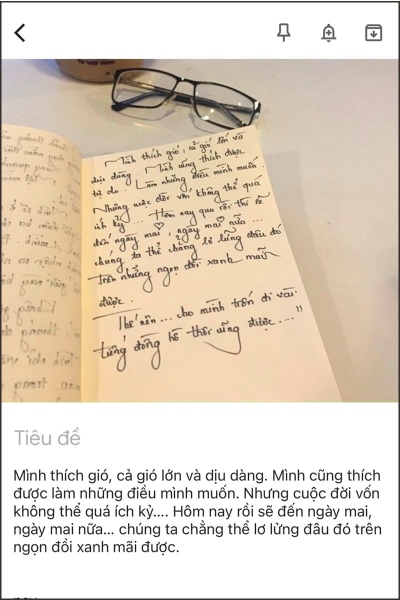 Mình thích gió, cả gió lớn và
dịu dàng. Mình cũng thích được
tự do. Làm những điều mình muốn.
Nhưng cuộc đời vốn không thể quá
ích kỷ... Hôm nay qua rồi thì sẽ
đến ngày mai, ngày mai nữa...
chúng ta thể chẳng lơ lửng đâu đó
trên những ngọn đồi xanh mãi
được.
Thế nên... cho mình trốn đi vài
tiếng đồng hồ thôi cũng được...."
Tiêu đề
Mình thích gió, cả gió lớn và dịu dàng. Mình cũng thích
được làm những điều mình muốn. Nhưng cuộc đời vốn
không thể quá ích kỷ.... Hôm nay rồi sẽ đến ngày mai,
ngày mai nữa... chúng ta chẳng thể lơ lửng đâu đó trên
ngọn đồi xanh mãi được.